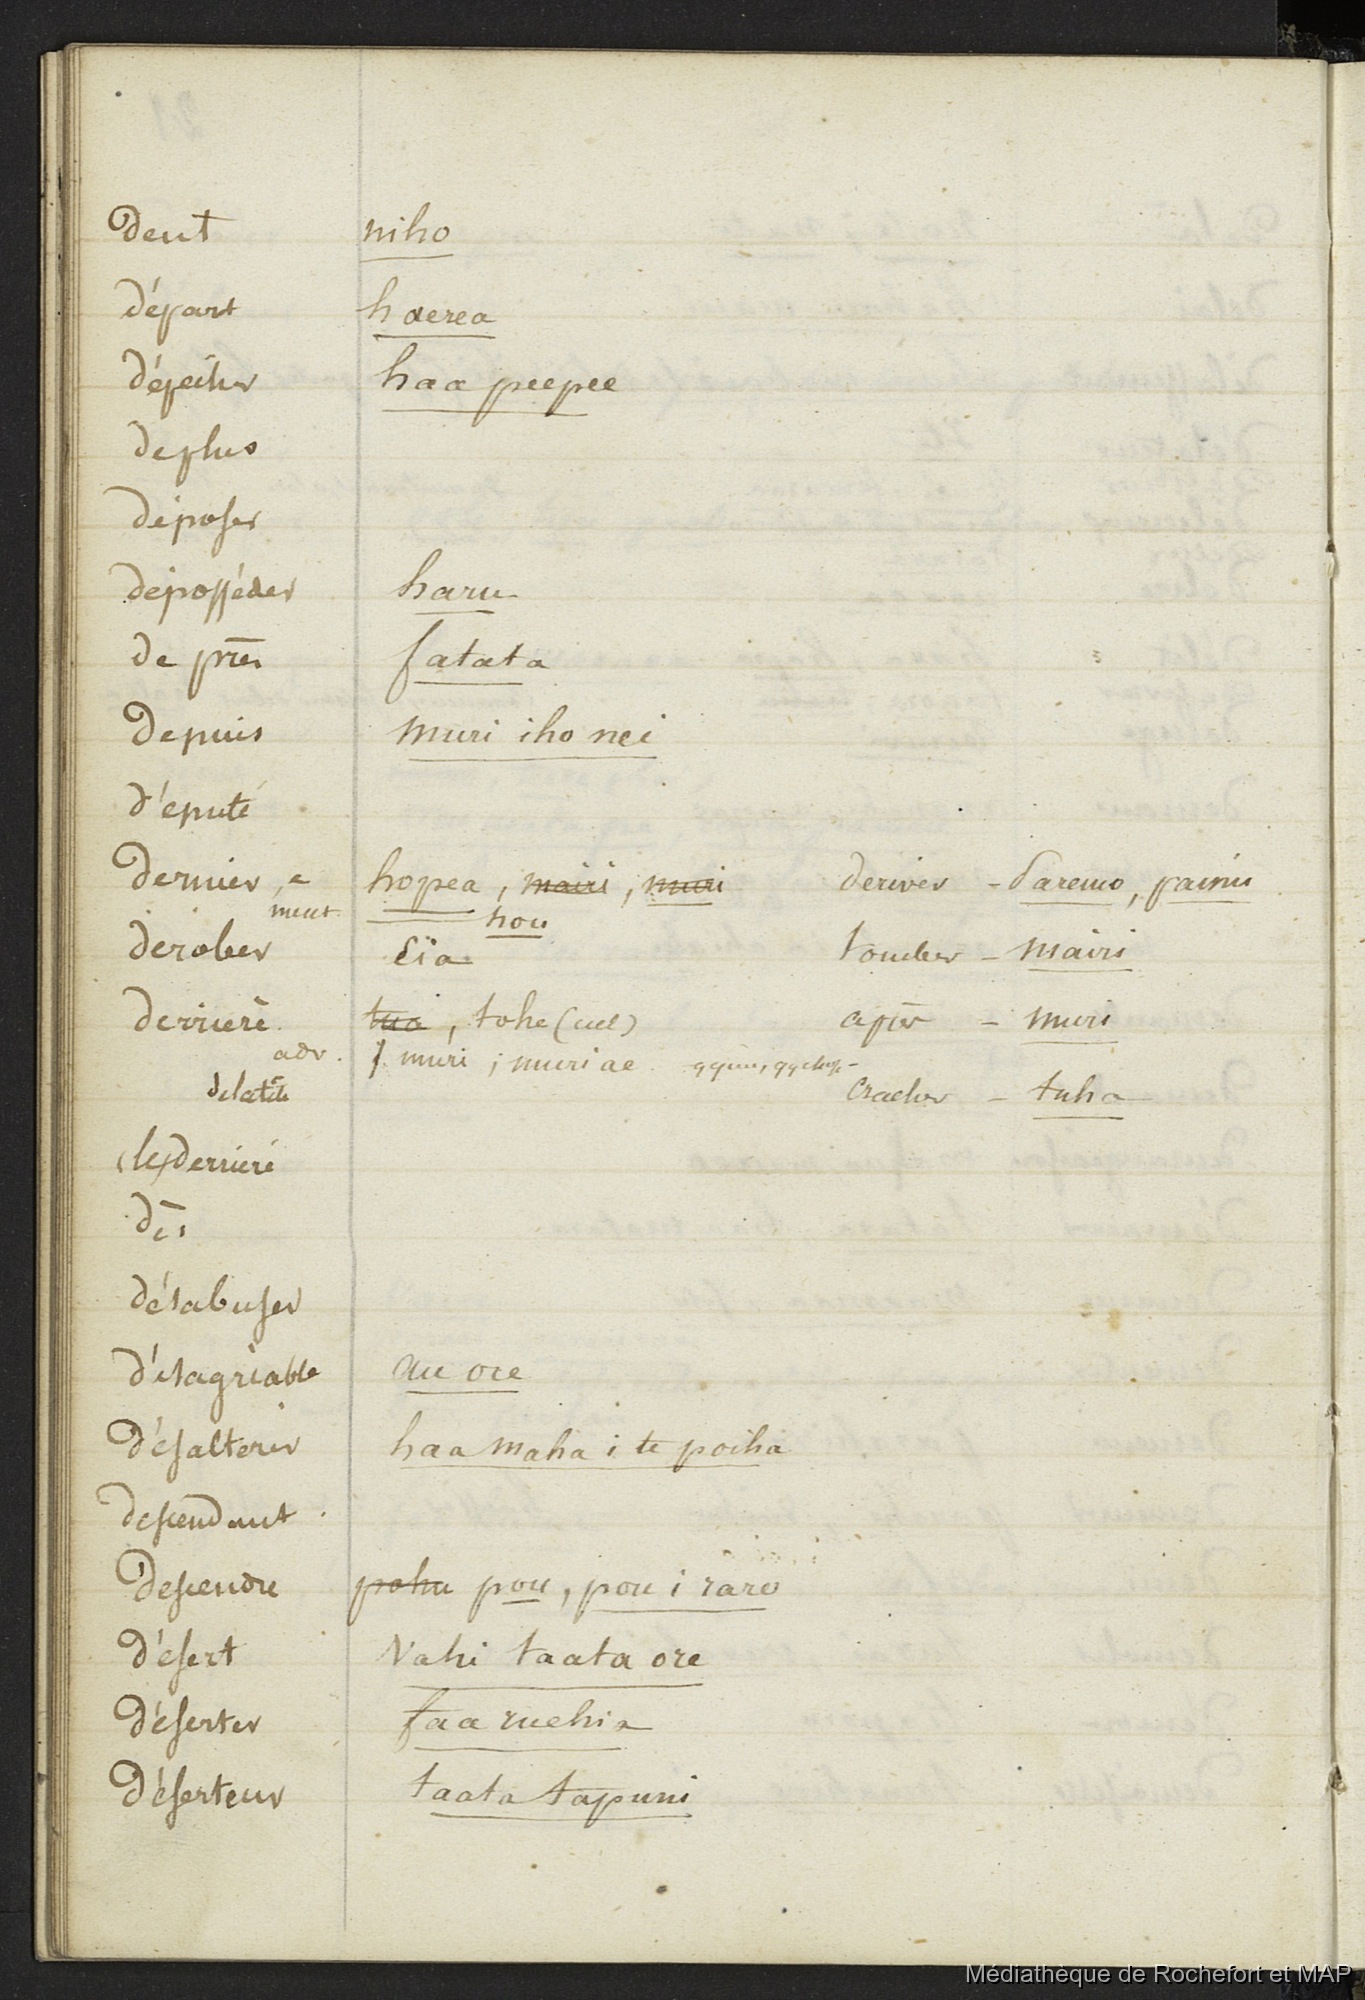 Dent niho
départ haerea
dépêcher haa peepee
deplus
déposer
déposséder haru
de près fatata
Depuis muri iho nei
député
Dernier, e hopea, mairi, muri deriver - paremo, painu
ment hou
dérober eïa tomber - mairi
derrière tua, tohe (cul) après - muri
adv. i muri ; muri ae
de la tête cracher - tuha
(le) derrière
dès
désabuser
désagréable au ore
Désalterer haa maha i te poiha
descendant
Descendre pohu pou, pou i raro
Désert Vahi taata ore
Déserter faaruehia
Déserteur taata tapuni
Médiathèque de Rochefort et MAP